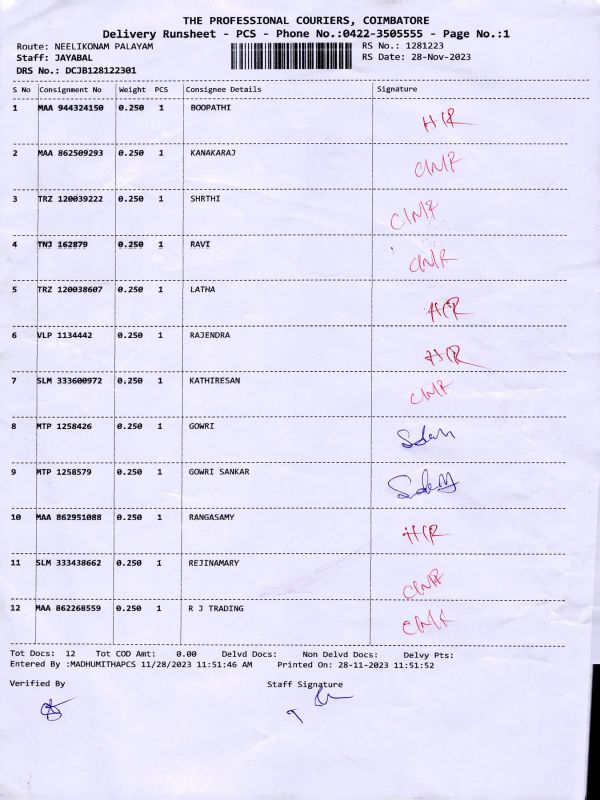 THE PROFESSIONAL COURIERS, COIMBATORE
Delivery Runsheet - PCS - Phone No.:0422-3505555 - Page No.:1
Route: NEELIKONAM PALAYAM RS No.: 1281223
Staff: JAYABAL RS Date: 28-Nov-2023
DRS No.: DCJB128122301
S No Consignment No Weight PCS Consignee Details Signature
1 MAA 944324150 0.250 1 BOOPATHI
2 MAA 862509293 0.250 1 KANAKARAJ
3 TRZ 120039222 0.250 1 SHRTHI
4 TNJ 162879 0.250 1 RAVI
5 TRZ 120038607 0.250 1 LATHA
6 VLP 1134442 0.250 1 RAJENDRA
7 SLM 333600972 0.250 1 KATHIRESAN
8 MTP 1258426 0.250 1 GOWRI
9 MTP 1258579 0.250 1 GOWRI SANKAR
10 MAA 862951088 0.250 1 RANGASAMY
11 SLM 333438662 0.250 1 REJINAMARY
12 MAA 862268559 0.250 1 R J TRADING
Tot Docs: 12 Tot COD Amt: 0.00 Delvd Docs: Non Delvd Docs: Delvy Pts:
Entered By :MADHUMITHAPCS 11/28/2023 11:51:46 AM Printed On: 28-11-2023 11:51:52
Verified By Staff Signature